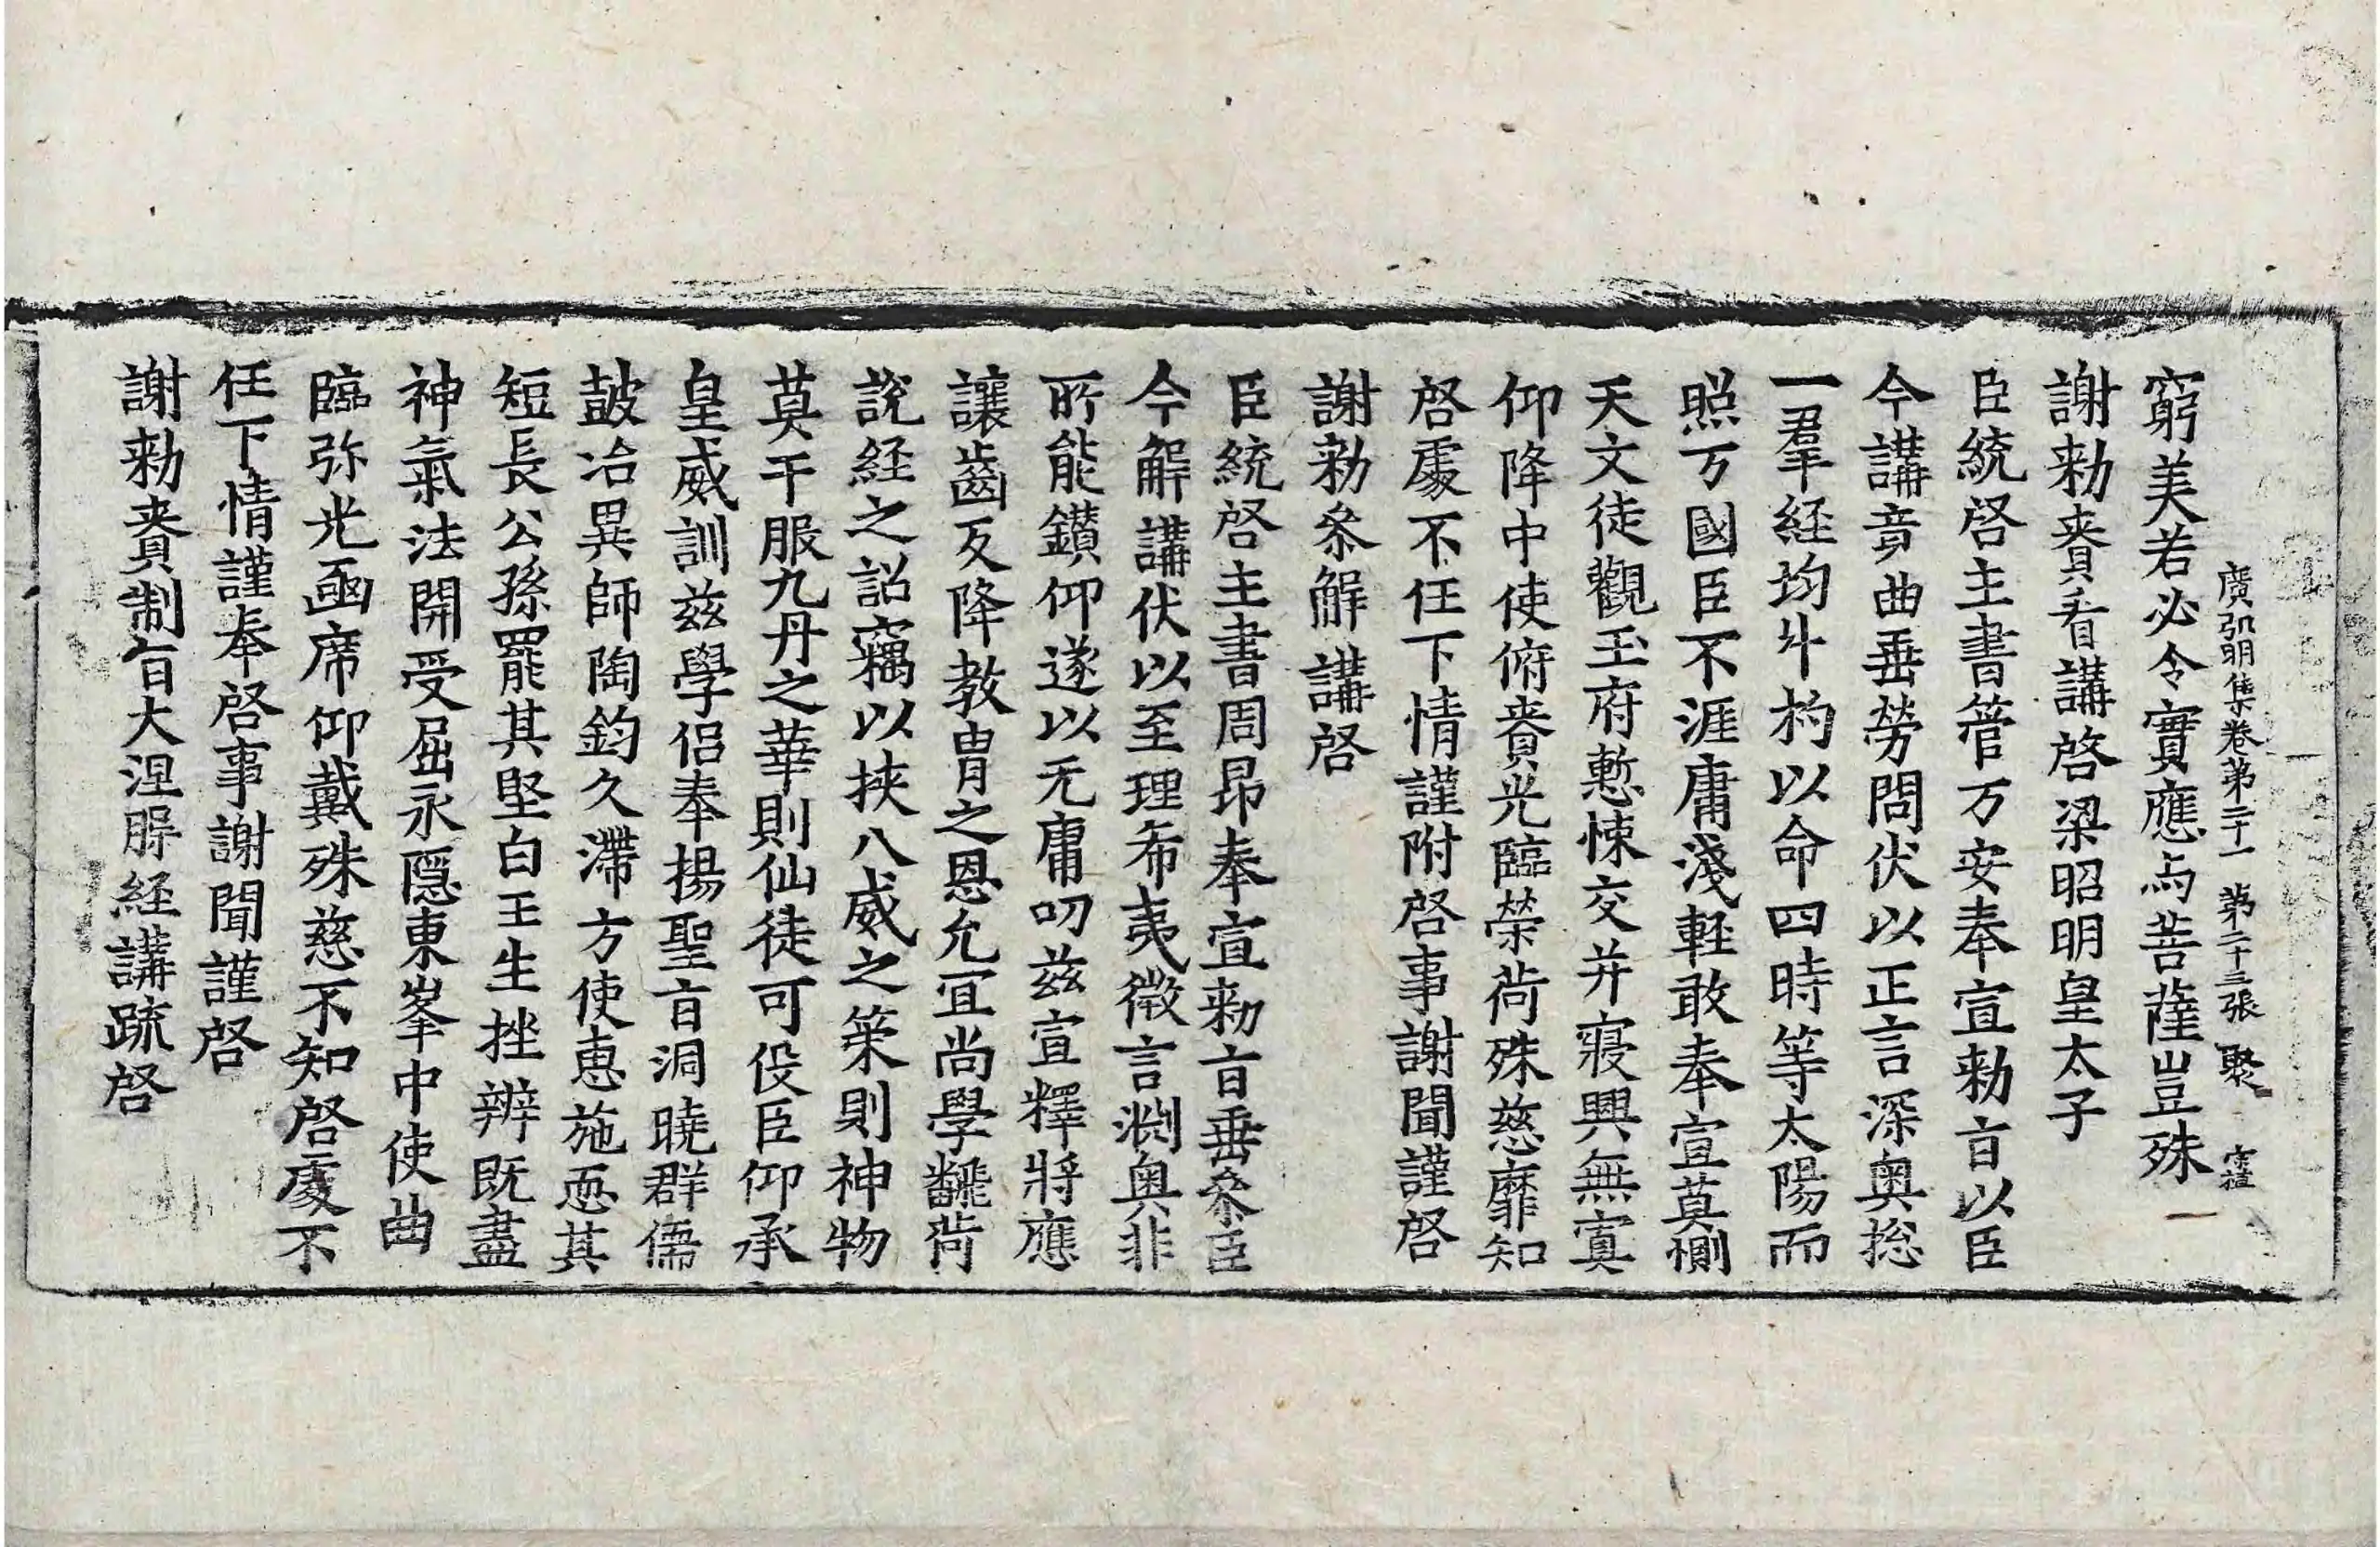 廣弘明集卷第二十一 第二十三張 聚
窮美若必令實應与菩薩豈殊
謝勑賚看講啓梁昭明皇太子
臣統啓主書管万安奉宣勑旨以臣
今講竟曲垂勞問伏以正言深奥揔
一羣經均斗杓以命四時等太陽而
照万國臣不涯庸淺輕敢奉宣莫惻
天文徒觀玉府慙悚交并寢興無寘
仰降中使俯賚光臨榮荷殊慈靡知
啓處不任下情謹附啓事謝聞謹啓
謝勑叅解講啓
臣統啓主書周昂奉宣勑旨垂叅臣
今解講伏以至理希夷微言淵奥非
所能鑚仰遂以无庸叨兹宣釋將應
讓齒反降教胄之恩允冝尚學飜荷
說經之詔竊以挾八威之策則神物
莫干服九丹之華則仙徒可役臣仰承
皇威訓兹學侣奉揚聖旨洞曉群儒
皷冶異師陶鈞久滯方使惠施恧其
短長公孫罷其堅白王生挫辨既盡
神氣法開受屈永隱東峯中使曲
臨弥光函席仰戴殊慈不知啓處不
任下情謹奉啓事謝聞謹啓
謝勑賚制旨大涅脬經講疏啓